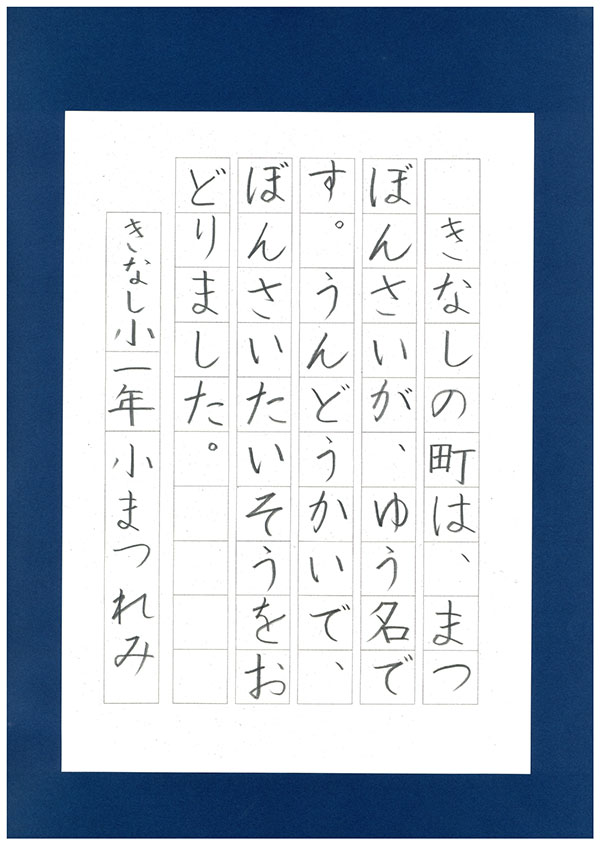 きなしの町は、まつ
ぼんさいが、ゆう名で
す。うんどうかいで、
ぼんさいたいそうをお
どりました。
きなし小一年小まつれみ